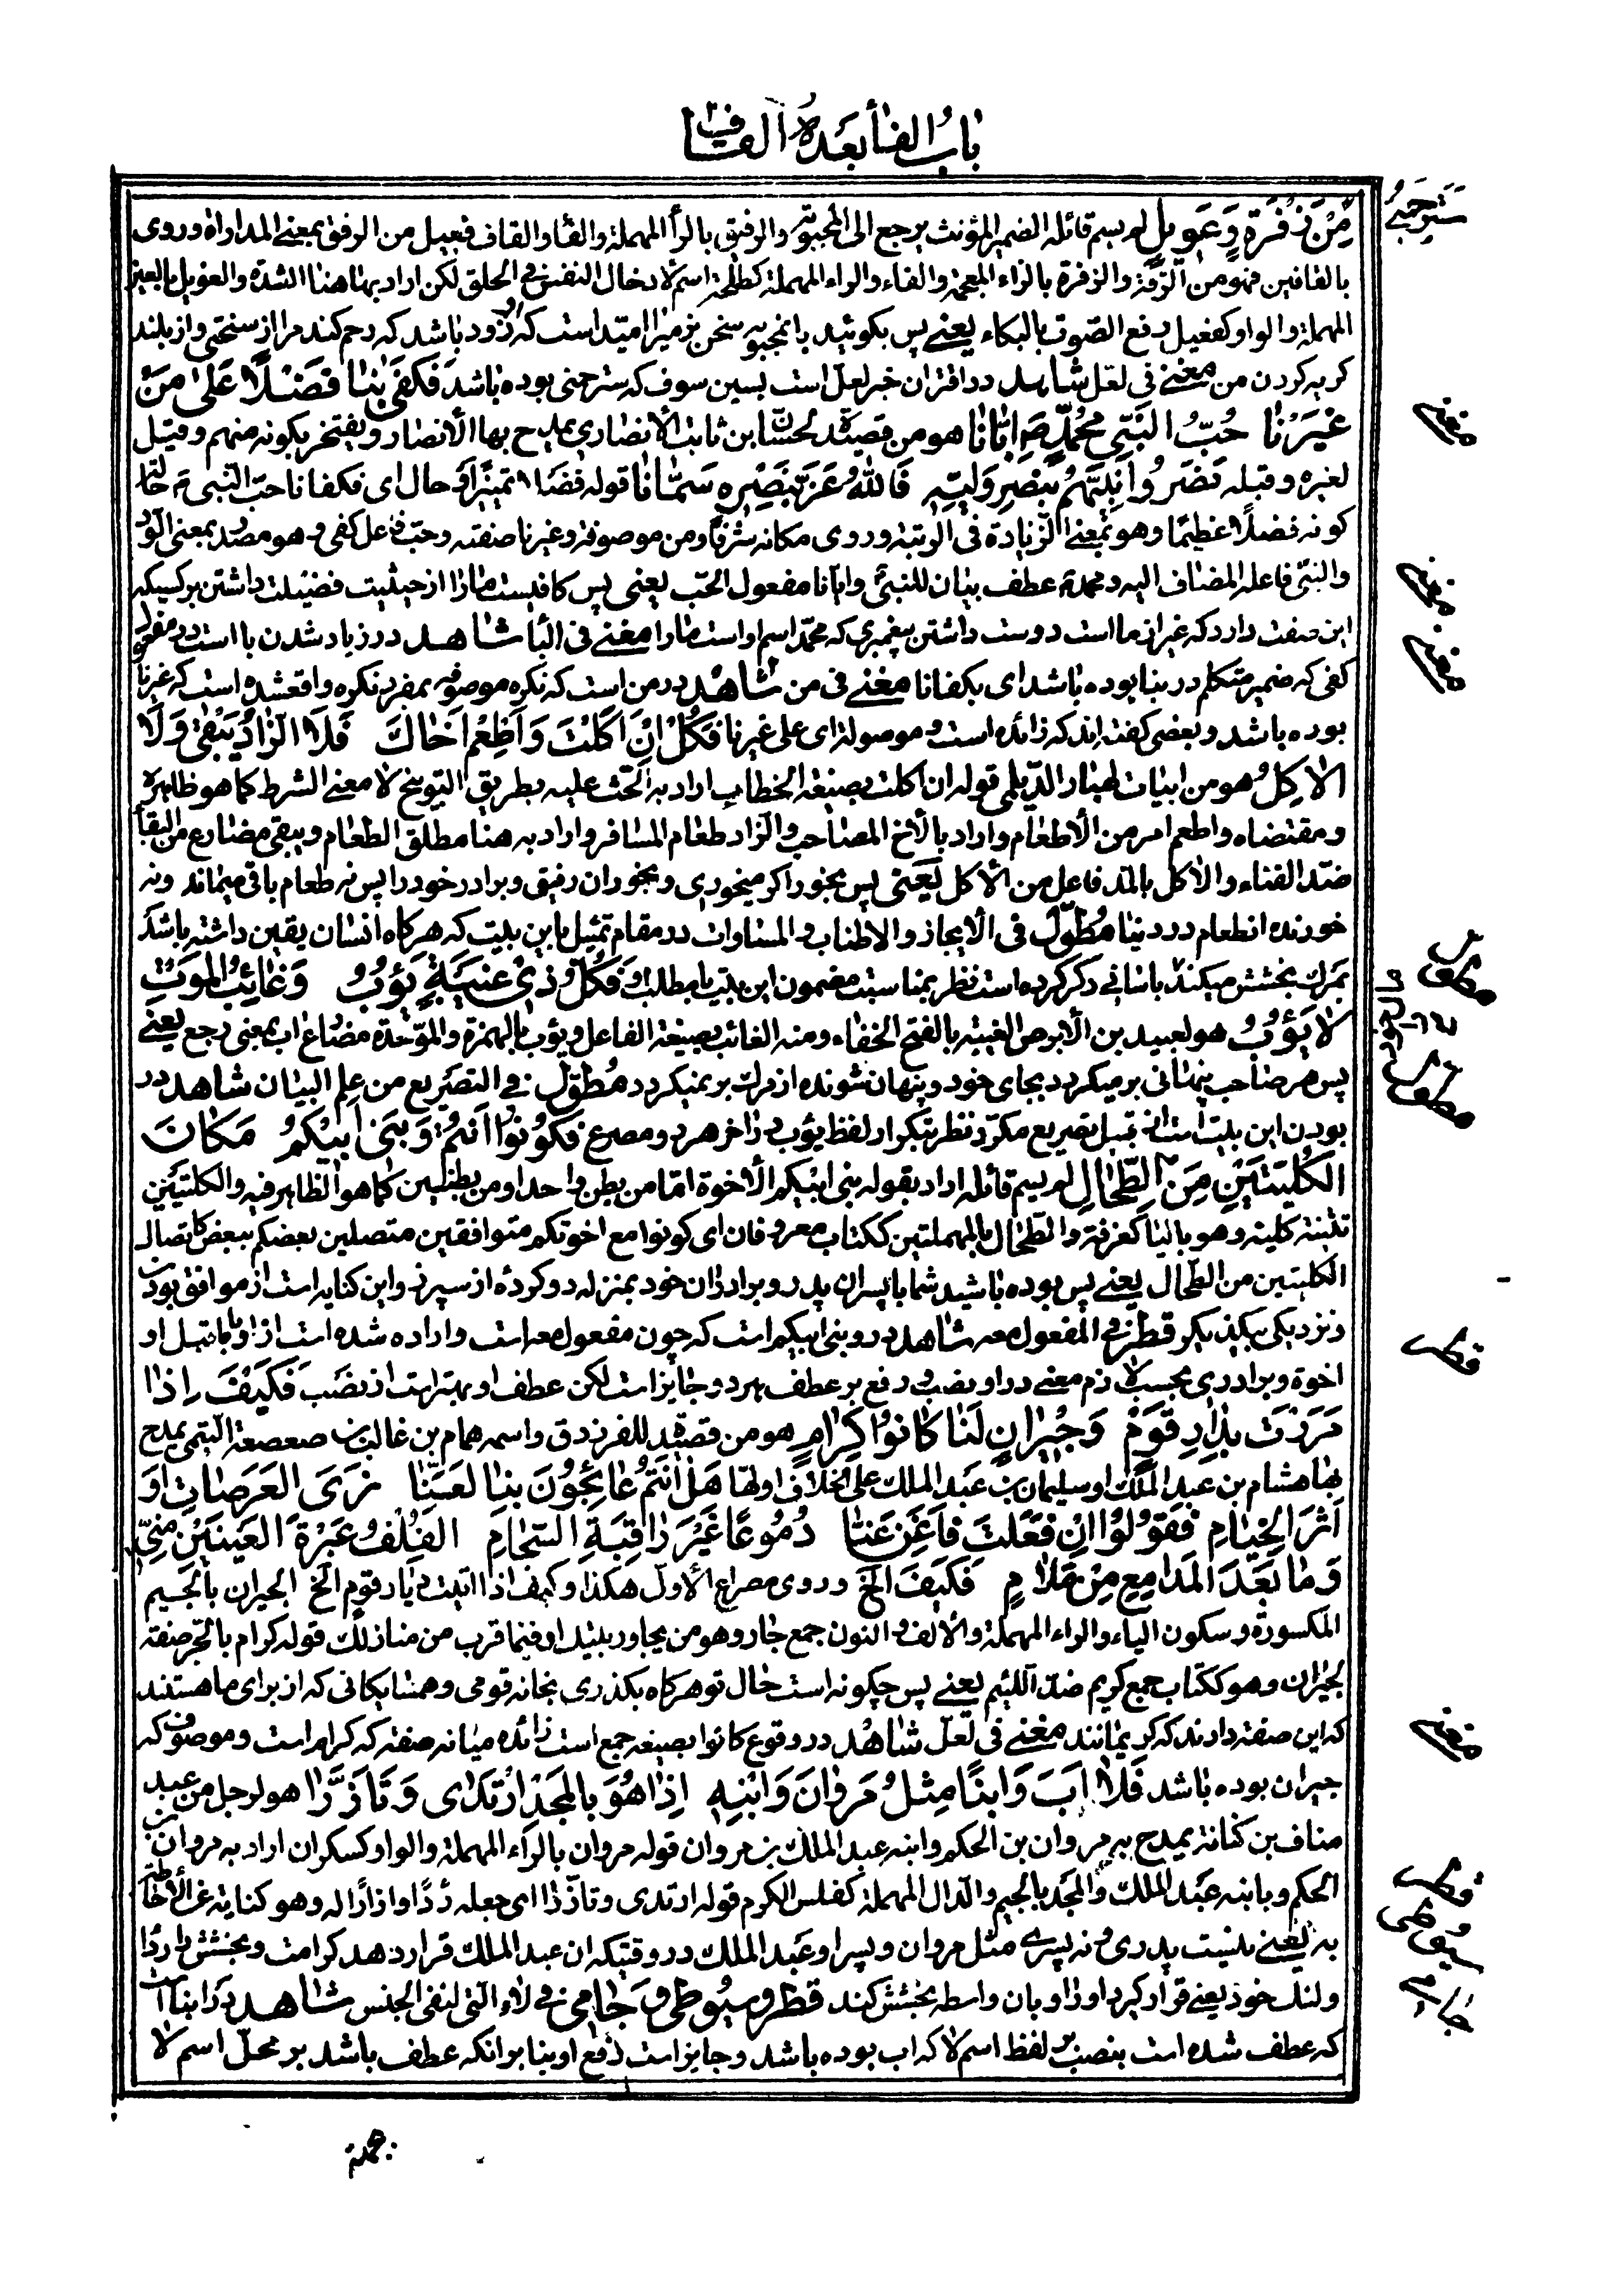 باب الفاء بعده القاف
سترحمني
مِنْ زَفْرَةٍ وَعَوِيلِ لم یسم قائله الضمیر المؤنث یرجع الی المحبوبة والرفیق بالراء المهملة والفاء والقاف فعیل من الرفق بمعنی المداراة وروی
بالقافین فهو من الرقة والزفرة بالزاء المعجمة والفاء والراء المهملة کطلحة اسم لادخال النفس فی الحلق لکن اراد بها هنا الشدة والعویل بالعین
المهملة والواو کفعیل رفع الصوت بالبکاء یعنی پس بکوئید بانمجبوبه سخن نرمیرا امید است که زود باشد که رحم کند مرا از سختی و از بلند
کریه کردن من مغنی فی لعل شاهد در اقتران خبر لعل است بسین سوف که سترحمنی بوده باشد فَکَفیٰ بِنا فَضْلًا عَلیٰ مَنْ
غَیْرِنا حُبُّ النَّبِیِّ مُحَمَّدٍ اِیّانا هو من قصیدة لحسان ابن ثابت الأنصاری یمدح بها الأنصار ویفتخر بکونه منهم وقیل
لغیره وقبله نَصَرُوا نَبِیَّهُمُ بِنَصْرِ وَلِیِّهِ فَاللّٰهُ عَزَّ بِنَصْرِهِ سَمّانا قوله فضلا تمییز او حال ای فکفانا حب النبی حالة
کونه فضلًا عظیمًا وهو بمعنی الزیادة فی الرتبة وروی مکانه شرفًا ومن موصوفة وغیرنا صفته وحب فاعل کفی وهو مصدر بمعنی الود
والنبی فاعله المضاف الیه ومحمد عطف بیان للنبی وایانا مفعول الحب یعنی پس کافیست مارا از حیثیت فضیلت داشتن بر کسیکه
این صفت دارد که غیر از ما است دوست داشتن پیغمبری که محمد اسم او است مارا مغنی فی البا شاهد در زیاد شدن با است در مفعول
کفی که ضمیر متکلم در بنا بوده باشد ای یکفانا مغنی فی من شاهد در من است که نکره موصوفه بمفرد نکره واقعشده است که غیرنا
بوده باشد وبعضی کفته‌اند که زائده است و موصولة ای علی غیرنا فَکُلْ اِنْ اَکَلْتَ وَاَطْعِمْ اَخاكَ فَلَا الزّادُ یَبْقیٰ وَلَا
الاٰکِلُ هو من ابیات لمهیار الدیلمی قوله ان اکلت بصیغة الخطاب اراد به الحث علیه بطریق التوبیخ لا معنی الشرط کما هو ظاهره
ومقتضاه واطعم امر من الأطعام واراد بالأخ المصاحب والزاد طعام المسافر واراد به هنا مطلق الطعام ویبقی مضارع من البقاء
ضد الفناء والاٰکل بالمد فاعل من الأکل یعنی پس بخور اکر میخوری وبخوران رفیق وبرادر خود را پس نه طعام باقی میماند ونه
خورنده انطعام در دنیا مُطَوَّل فی الأیجاز والاطناب والمساوات در مقام تمثیل باین بیت که هرکاه انسان یقین داشته باشد
بمرك بخشش میکند باسانی ذکر کرده است نظر بمناسبت مضمون این بیت با مطلب او فَکُلُّ ذِی غَیْبَةٍ یَؤُبُ وَغائِبُ المَوْتِ
لایَؤُبُ هو لعبید بن الأبرص الغیبة بالفتح الخفاء ومنه الغائب بصیغة الفاعل ویؤب بالهمزة والموحدة مضارع اب بمعنی رجع یعنی
پس هر صاحب پنهانی برمیکردد بجای خود و پنهان شونده از مرك برنمیکردد مُطَوَّل فی التصریع من علم البیان شاهد در
بودن این بیت است از قبیل تصریع مکرر نظر بتکرار لفظ یؤب در اخر هر دو مصرع فَکُونُوا اَنْتُمُ وَبَنِی اَبِیکُمْ مَکانَ
الکُلْیَتَیْنِ مِنَ الطِّحالِ لم یسم قائله اراد بقوله بنی ابیکم الأخوة اما من بطن واحد او من بطنین کما هو الظاهر فیه والکلیتین
تثنیة کلیة وهو بالیا کغرفة والطحال بالمهملتین ککتاب معروفان ای کونوا مع اخوتکم متوافقین متصلین بعضکم ببعض کاتصال
الکلیتین من الطحال یعنی پس بوده باشید شما با پسران پدر و برادران خود بمنزله دو کرده از سپرز و این کنایه است از موافق بودن
و نزدیکی بیکدیکر قطر فی المفعول معه شاهد در و بنی ابیکم است که چون مفعول معه است و اراده شده است از او با ما قبل او
اخوة و برادری بحسب لازم معنی در او نصب و رفع بر عطف هر دو جایز است لکن عطف او بهتر است از نصب فَکَیْفَ اِذا
مَرَرْتَ بِدارِ قَوْمٍ وَجِیرانٍ لَنا کانُوا کِرامٍ هو من قصیدة للفرزدق واسمه همام بن غالب بن صعصعة التمیمی یمدح
بها هشام بن عبد الملك او سلیمان بن عبد الملك علی الخلاف اولها هَلْ اَنْتُمْ عائِجُونَ بِنا لَعَنّا نَرَی العَرَصاتِ اَوْ
اَثَرَ الخِیامِ فَقُولُوا اِنْ فَعَلْتَ فَاَغْنِ عَنّا دُمُوعًا غَیْرَ راقِیَةِ السِّجامِ اَکَفْکِفُ عَبْرَةَ العَیْنَیْنِ مِنّی
وَما بَعْدَ المَدامِعِ مِنْ مَلامٍ فَکَیْفَ الخ وروی مصراع الأول هکذا وکیف اذا اتیت دیار قوم الخ الجیران بالجیم
المکسورة وسکون الیاء والراء المهملة والألف والنون جمع جار وهو من یجاور بیتك او فیما قرب من منازلك قوله کرام بالجر صفة
لجیران وهو ککتاب جمع کریم ضد اللئیم یعنی پس چکونه است حال تو هرکاه بکذری بخانه قومی و همسایکانی که از برای ما هستند
که این صفت دارند که کریمانند مغنی فی لعل شاهد در وقوع کانوا بصیغه جمع است زائده میانه صفة که کرام است وموصوف که
جیران بوده باشد فَلا اَبَ وَابْنًا مِثْلُ مَرْوانَ وَابْنِهِ اِذا هُوَ بِالمَجْدِ ارْتَدیٰ وَتَأَزَّرا هو لرجل من عبد
مناف بن کنانة یمدح به مروان بن الحکم وابنه عبد الملك بن مروان قوله مروان بالراء المهملة والواو کسکران اراد به مروان بن
الحکم وبابنه عبد الملك والمجد بالجیم والدال المهملة کفلس الکرم قوله ارتدی وتأزرا ای جعله رداً وازارًا له وهو کنایة عن الأحاطة
به یعنی نیست پدری و نه پسری مثل مروان و پسر او عبد الملك در وقتیکه ان عبد الملك قرار دهد کرامت و بخشش را ردا
ولنك خود یعنی قرار کیرد او را و بان واسطه بخشش کند قطر وسیوطی وجامی فی لاء التی لنفی الجنس شاهد در ابنا است
که عطف شده است بنصب بر لفظ اسم لا که اب بوده باشد و جایز است رفع او بنا بر انکه عطف باشد بر محل اسم لا
مغنی
مغنی
مغنی
مطول
مطول
قطر
مغنی
قطر
سیوطی
جامی